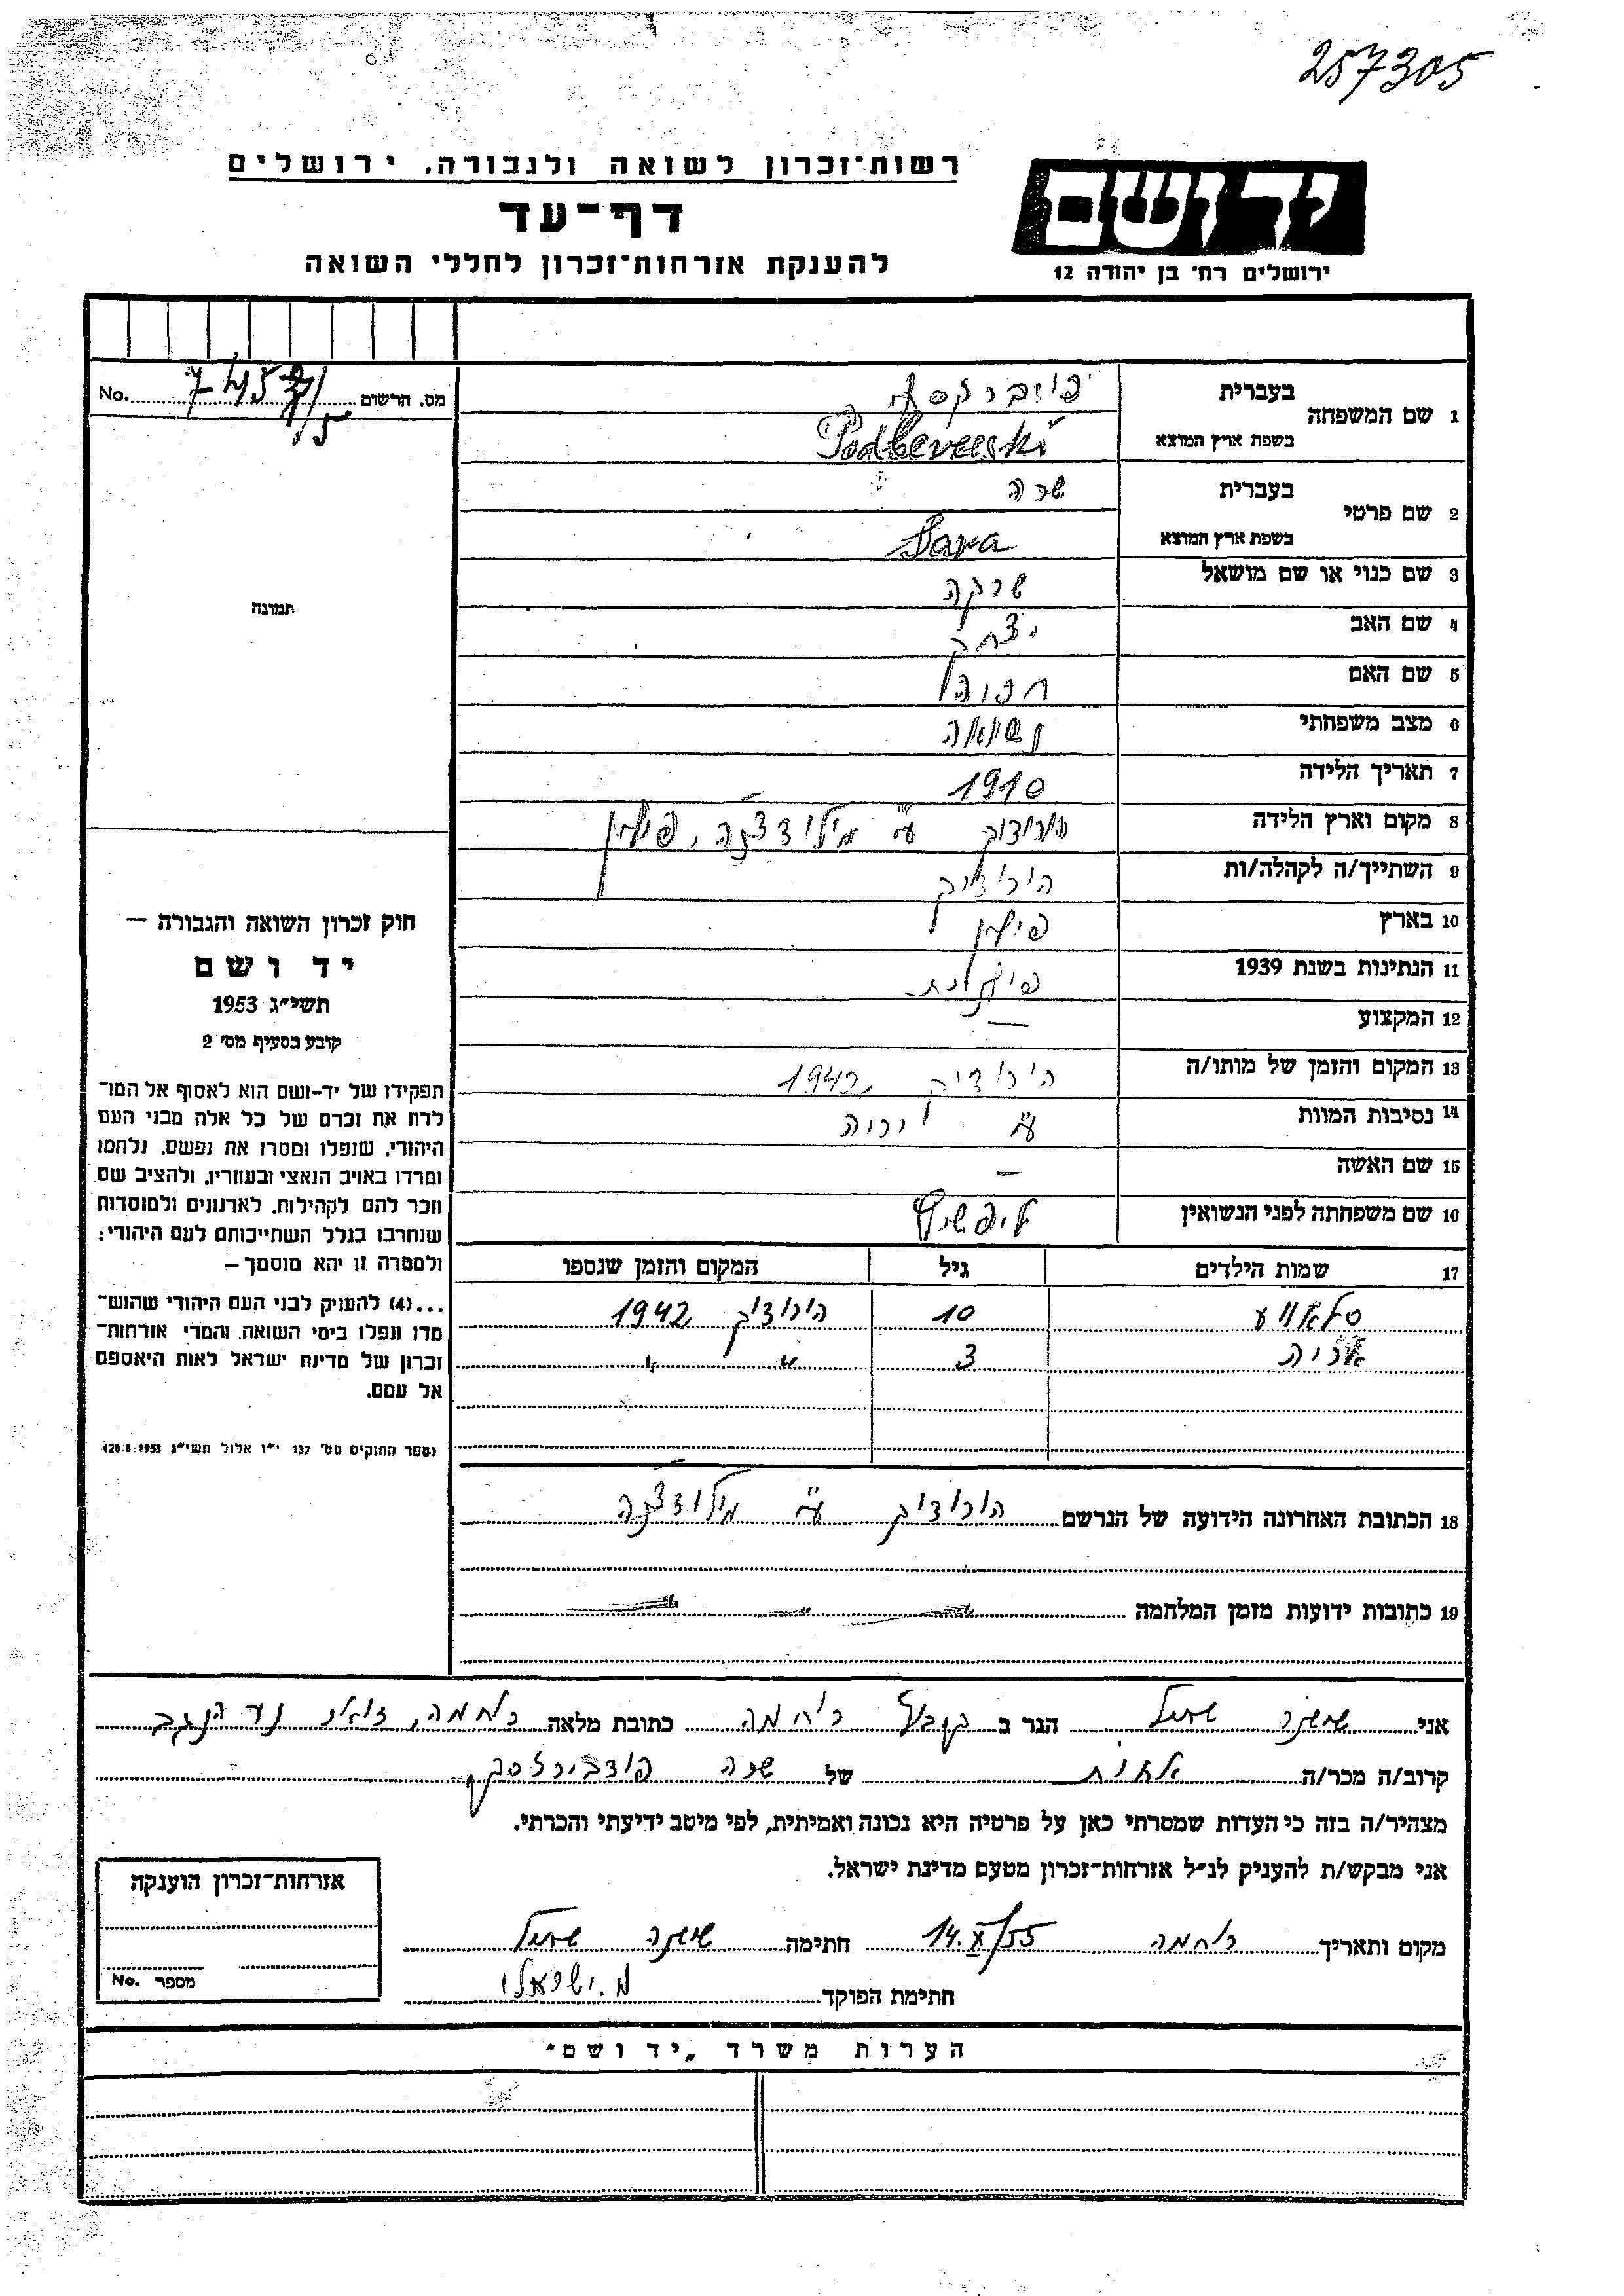 257305
רשות־זכרון לשואה ולגבורה. ירושלים
דף־עד
להענקת אזרחות־זכרון לחללי השואה
יד ושם
ירושלים רח׳ בן יהודה 12
מס. הרשום No.
1 שם המשפחה
בעברית
בשפת ארץ המוצא Podbereski
2 שם פרטי
בעברית שרה
בשפת ארץ המוצא Sara
3 שם כנוי או שם מושאל שרקה
4 שם האב יצחק
5 שם האם
6 מצב משפחתי נשואה
7 תאריך הלידה 1910
8 מקום וארץ הלידה הורודוק ע״י מילודצ׳נה, פולין
9 השתייך/ה לקהלה/ות הורודוק
10 בארץ פולין
11 הנתינות בשנת 1939 פולנית
12 המקצוע —
13 המקום והזמן של מותו/ה הורודוק 1942
14 נסיבות המוות ע״י יריה
15 שם האשה —
16 שם משפחתה לפני הנשואין ליפשיץ
17 שמות הילדים גיל המקום והזמן שנספו
10 הורודוק 1942
אריה 3 " "
18 הכתובת האחרונה הידועה של הנרשם הורודוק ע״י מילודצ׳נה
19 כתובות ידועות מזמן המלחמה " " "
תמונה
חוק זכרון השואה והגבורה —
יד ושם
תשי״ג 1953
קובע בסעיף מס׳ 2
תפקידו של יד־ושם הוא לאסוף אל המו־
לדת את זכרם של כל אלה מבני העם
היהודי, שנפלו ומסרו את נפשם, נלחמו
ומרדו באויב הנאצי ובעוזריו, ולהציב שם
וזכר להם לקהילות, לארגונים ולמוסדות
שנחרבו בגלל השתייכותם לעם היהודי:
ולמטרה זו יהא מוסמך —
...(4) להעניק לבני העם היהודי שהוש־
מדו ונפלו בימי השואה והמרי אזרחות־
זכרון של מדינת ישראל לאות היאספם
אל עמם.
(ספר החוקים מס׳ 132 י״ז אלול תשי״ג 28.8.1953)
אני שושנה הגר ב קבוץ רוחמה כתובת מלאה רוחמה, דואר נע הנגב
קרוב/ה מכר/ה אחות של שרה פודבירזסקי
מצהיר/ה בזה כי העדות שמסרתי כאן על פרטיה היא נכונה ואמיתית, לפי מיטב ידיעתי והכרתי.
אני מבקש/ת להעניק לנ״ל אזרחות־זכרון מטעם מדינת ישראל.
מקום ותאריך רוחמה 14.X/55 חתימה שושנה
חתימת הפוקד מ. ישראלי
אזרחות־זכרון הוענקה
מספר No.
הערות משרד „יד ושם״